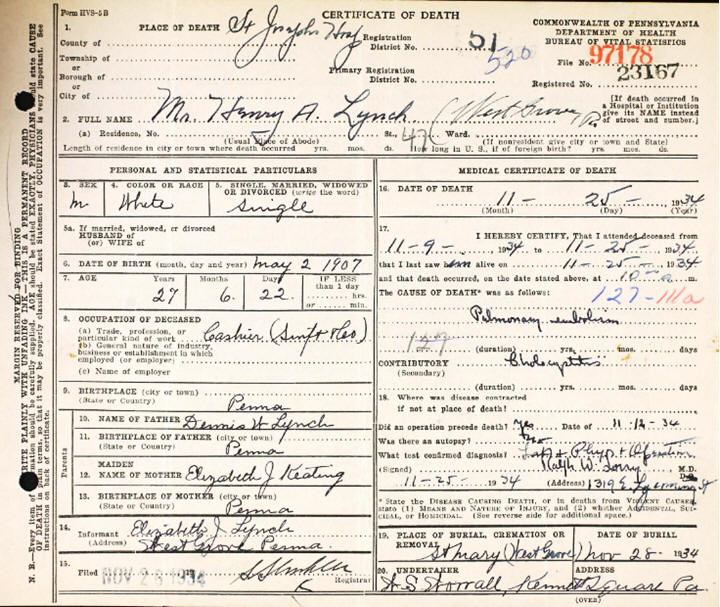 Form HVS-5B
CERTIFICATE OF DEATH
COMMONWEALTH OF PENNSYLVANIA
DEPARTMENT OF HEALTH
BUREAU OF VITAL STATISTICS
1. PLACE OF DEATH St Josephs Hosp
County of
Registration District No. 51
520
File No. 97178
Township of
or
Borough of
or
City of
Primary Registration District No.
23167
Registered No.
[If death occurred in a Hospital or Institution give its NAME instead of street and number.]
2. FULL NAME Mr. Henry A. Lynch (West Grove, Pa.
(a) Residence, No. St., Ward.
(Usual Place of Abode) (If nonresident give city or town and State)
Length of residence in city or town where death occurred yrs. mos. ds. How long in U. S., if of foreign birth? yrs. mos. ds.
PERSONAL AND STATISTICAL PARTICULARS
3. SEX
m
4. COLOR OR RACE
White
5. SINGLE, MARRIED, WIDOWED OR DIVORCED (write the word)
Single
5a. If married, widowed, or divorced
HUSBAND of
(or) WIFE of
6. DATE OF BIRTH (month, day and year) may 2 1907
7. AGE Years Months Days IF LESS than 1 day,
27 6 22 hrs. or min.
8. OCCUPATION OF DECEASED
(a) Trade, profession, or particular kind of work Cashier (Swift & Co)
(b) General nature of industry, business or establishment in which employed (or employer)
(c) Name of employer
9. BIRTHPLACE (city or town)
(State or Country) Penna
Parents
10. NAME OF FATHER Dennis W Lynch
11. BIRTHPLACE OF FATHER (city or town)
(State or Country) Penna
12. MAIDEN NAME OF MOTHER Elizabeth J Keating
13. BIRTHPLACE OF MOTHER (city or town)
(State or Country) Penna
14. Informant Elizabeth J Lynch
(Address) West Grove Penna
15. Filed NOV 26 1934
Registrar
MEDICAL CERTIFICATE OF DEATH
16. DATE OF DEATH 11 - 25 - 1934
(Month) (Day) (Year)
17. I HEREBY CERTIFY, That I attended deceased from
11-9- 1934 to 11-25- 1934
that I last saw him alive on 11-25- 1934
and that death occurred, on the date stated above, at 10 a m.
The CAUSE OF DEATH* was as follows: 127-111a
Pulmonary embolism
127
(duration) yrs. mos. days
CONTRIBUTORY
(Secondary)
(duration) yrs. mos. days
18. Where was disease contracted
if not at place of death?
Did an operation precede death? yes Date of 11-12-34
Was there an autopsy?
What test confirmed diagnosis? Lab & Phys. & Operation
(Signed) Ralph W. M.D.
11-25- 1934 (Address) 1319 E.
* State the DISEASE CAUSING DEATH, or in deaths from VIOLENT CAUSES, state (1) MEANS AND NATURE OF INJURY, and (2) whether ACCIDENTAL, SUICIDAL, or HOMICIDAL. (See reverse side for additional space.)
19. PLACE OF BURIAL, CREMATION OR REMOVAL
St Mary (West Grove)
DATE OF BURIAL
Nov 28 - 1934
20. UNDERTAKER ADDRESS
Worrall, Kennett Square Pa.
(OVER)
MARGIN RESERVED FOR BINDING
WRITE PLAINLY WITH UNFADING INK, THIS IS A PERMANENT RECORD